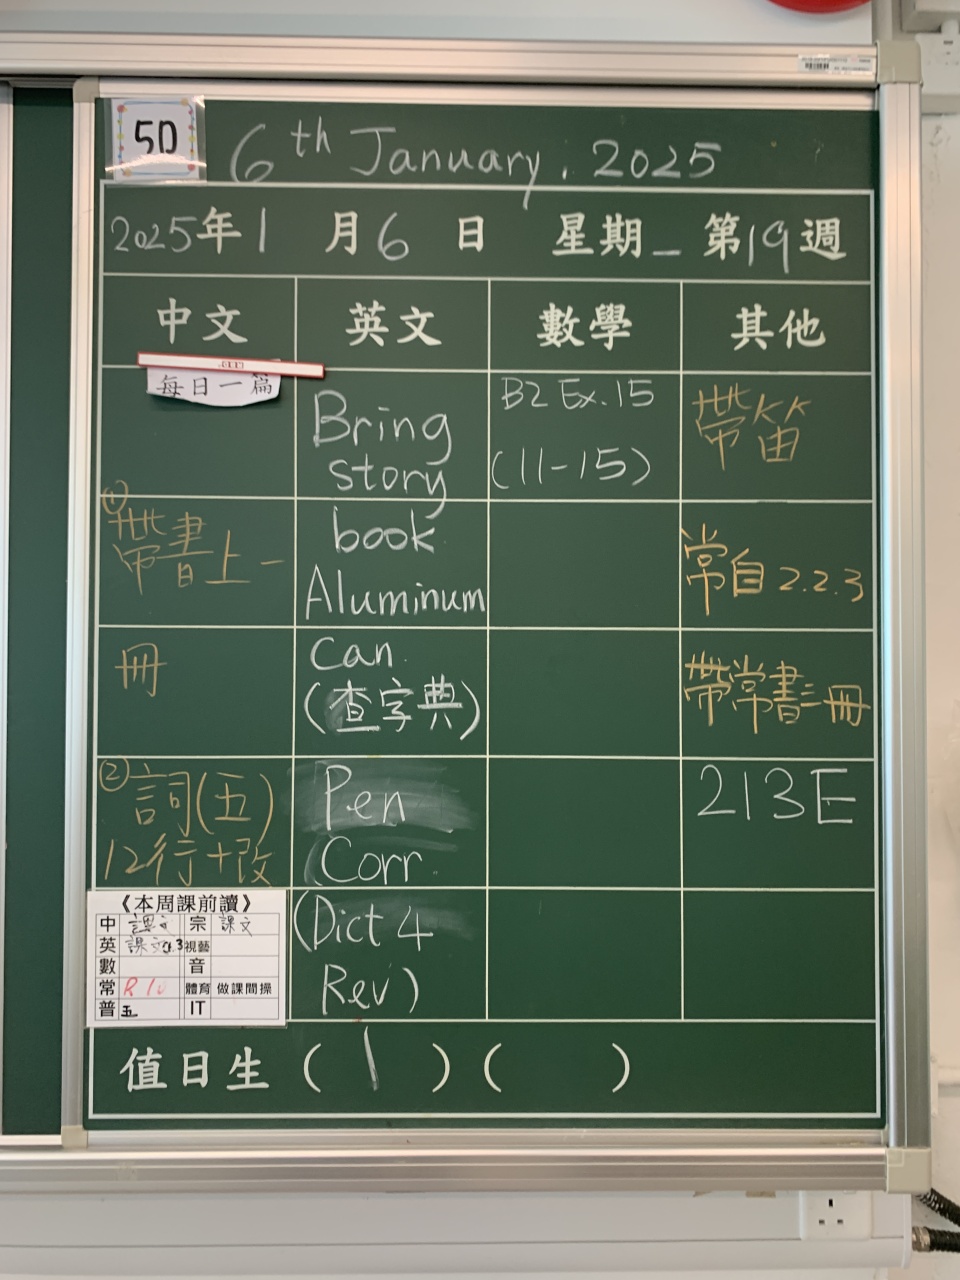 5D
6th January. 2025
2025年1月6日 星期一 第19週
中文 英文 數學 其他
每日一篇
①
帶書上一
冊
②
詞(五)
12行+改
Bring
story
book
Aluminum
Can
(查字典)
Pen
Corr.
(Dict 4
Rev)
B2 Ex.15
(11-15)
帶笛
常自 2.2.3
帶常書三冊
213E
《本周課前讀》
中 課文 宗 課文
英 課文 視藝
數 音
常 體育 做課間操
普 五 IT
值日生 ( 1 ) ( )